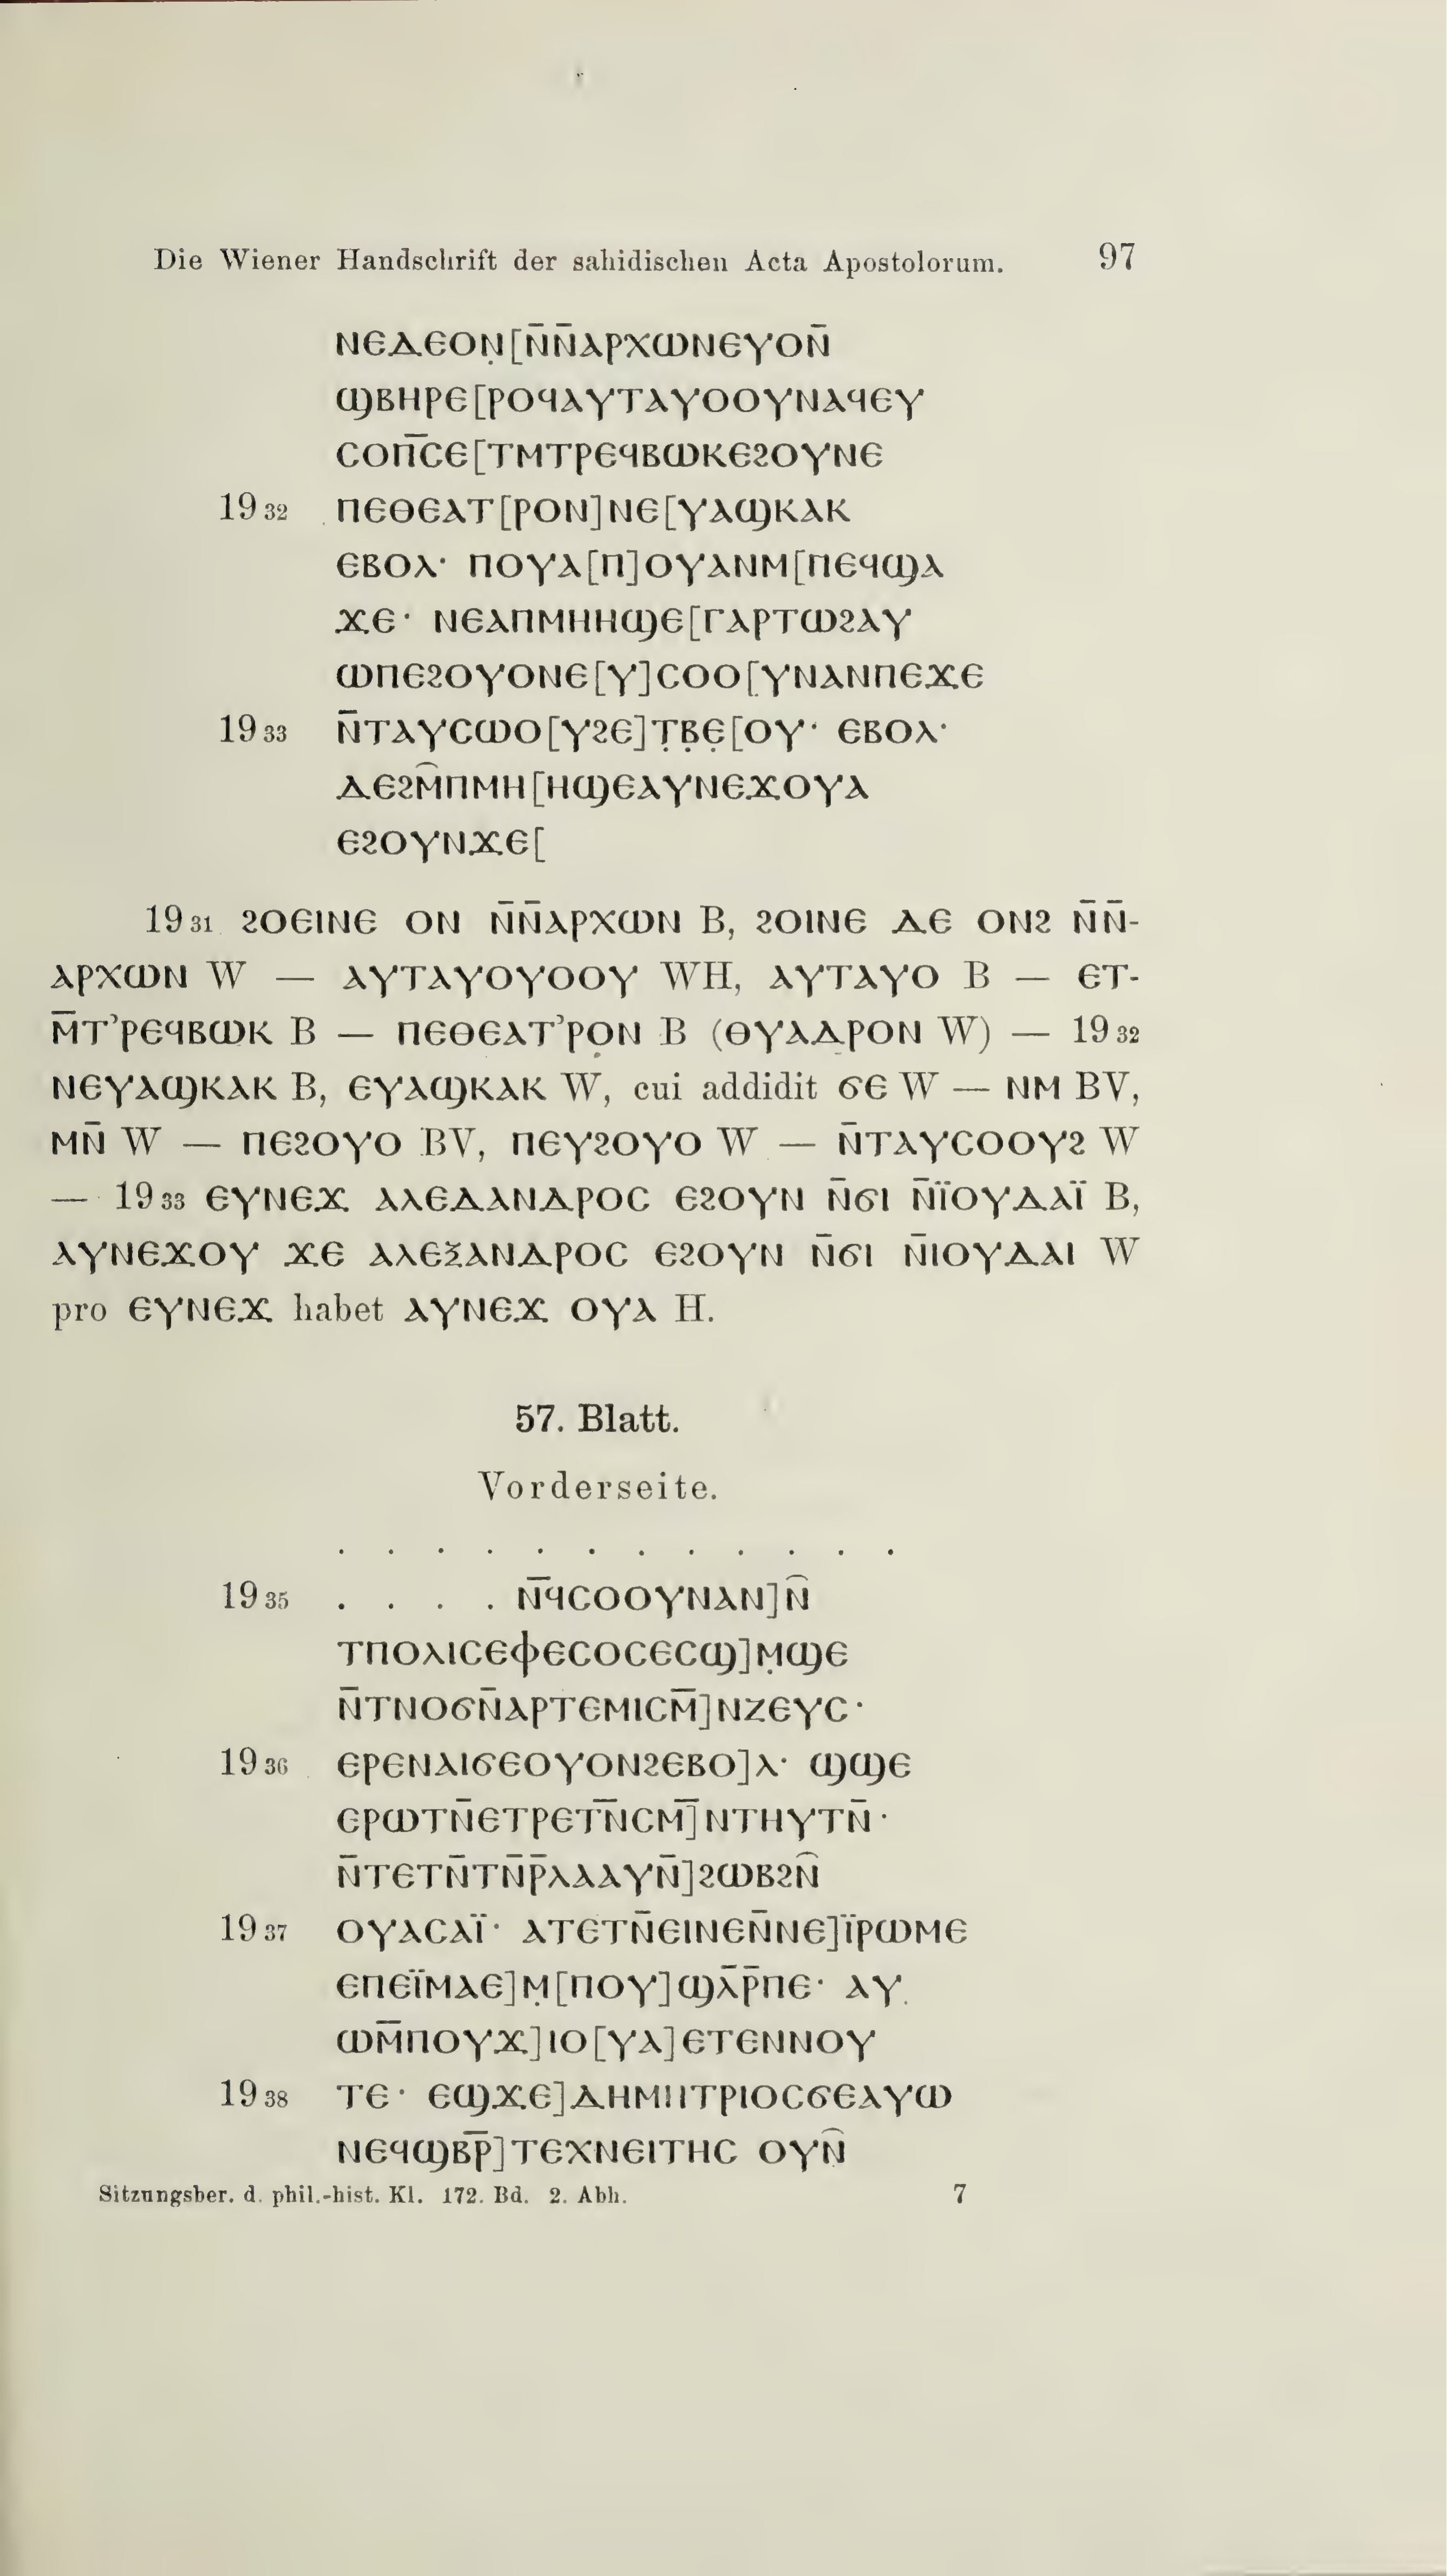 Die Wiener Handschrift der sahidischen Acta Apostolorum. 97
ⲛⲉⲇⲉⲟⲛ̣[ⲛ̄ⲛ̄ⲁⲣⲭⲱⲛⲉⲩⲟⲛ̄
ϣⲃⲏⲣⲉ[ⲣⲟϥⲁⲩⲧⲁⲩⲟⲟⲩⲛⲁϥⲉⲩ
ⲥⲟⲡ̄ⲥⲉ[ⲧⲙⲧⲣⲉϥⲃⲱⲕⲉϩⲟⲩⲛⲉ
19 32 ⲡⲉⲑⲉⲁⲧ[ⲣⲟⲛ]ⲛⲉ[ⲩⲁϣⲕⲁⲕ
ⲉⲃⲟⲗ· ⲡⲟⲩⲁ[ⲡ]ⲟⲩⲁⲛⲙ[ⲡⲉϥϣⲁ
ϫⲉ· ⲛⲉⲁⲡⲙⲏⲏϣⲉ[ⲅⲁⲣⲧⲱϩⲁⲩ
ⲱⲡⲉϩⲟⲩⲟⲛⲉ[ⲩ]ⲥⲟⲟ[ⲩⲛⲁⲛⲡⲉϫⲉ
19 33 ⲛ̄ⲧⲁⲩⲥⲱⲟ[ⲩϩⲉ]ⲧ̣ⲃ̣ⲉ̣[ⲟⲩ· ⲉⲃⲟⲗ·
ⲇⲉϩⲙ̑ⲡⲙⲏ[ⲏϣⲉⲁⲩⲛⲉϫⲟⲩⲁ
ⲉϩⲟⲩⲛϫⲉ[
19 31 ϩⲟⲉⲓⲛⲉ ⲟⲛ ⲛ̄ⲛ̄ⲁⲣⲭⲱⲛ B, ϩⲟⲓⲛⲉ ⲇⲉ ⲟⲛϩ ⲛ̄ⲛ̄-
ⲁⲣⲭⲱⲛ W — ⲁⲩⲧⲁⲩⲟⲩⲟⲟⲩ WH, ⲁⲩⲧⲁⲩⲟ B — ⲉⲧ-
ⲙ̄ⲧ’ⲣⲉϥⲃⲱⲕ B — ⲡⲉⲑⲉⲁⲧ’ⲣⲟⲛ B (ⲑⲩⲁⲇⲣⲟⲛ W) — 19 32
ⲛⲉⲩⲁϣⲕⲁⲕ B, ⲉⲩⲁϣⲕⲁⲕ W, cui addidit ϭⲉ W — ⲛⲙ BV,
ⲙⲛ̄ W — ⲡⲉϩⲟⲩⲟ BV, ⲡⲉⲩϩⲟⲩⲟ W — ⲛ̄ⲧⲁⲩⲥⲟⲟⲩϩ W
— 19 33 ⲉⲩⲛⲉϫ ⲁⲗⲉⲇⲁⲛⲇⲣⲟⲥ ⲉϩⲟⲩⲛ ⲛ̄ϭⲓ ⲛ̄ⲓ̈ⲟⲩⲇⲁⲓ̈ B,
ⲁⲩⲛⲉϫⲟⲩ ϫⲉ ⲁⲗⲉⲝⲁⲛⲇⲣⲟⲥ ⲉϩⲟⲩⲛ ⲛ̄ϭⲓ ⲛ̄ⲓⲟⲩⲇⲁⲓ W
pro ⲉⲩⲛⲉϫ habet ⲁⲩⲛⲉϫ ⲟⲩⲁ H.
57. Blatt.
Vorderseite.
. . . . . . . . . . . .
19 35 . . . . ⲛ̄ϥⲥⲟⲟⲩⲛⲁⲛ]ⲛ̑
ⲧⲡⲟⲗⲓⲥⲉⲫⲉⲥⲟⲥⲉⲥϣ]ⲙ̣ϣⲉ
ⲛ̄ⲧⲛⲟϭⲛ̄ⲁⲣⲧⲉⲙⲓⲥⲙ̄]ⲛⲍⲉⲩⲥ·
19 36 ⲉⲣⲉⲛⲁⲓϭⲉⲟⲩⲟⲛϩⲉⲃⲟ]ⲗ· ϣϣⲉ
ⲉⲣⲱⲧⲛ̄ⲉⲧⲣⲉⲧⲛ̄ⲥⲙ̄]ⲛⲧⲏⲩⲧⲛ̄·
ⲛ̄ⲧⲉⲧⲛ̄ⲧⲛ̄ⲣ̄ⲗⲁⲁⲩⲛ̄]ϩⲱⲃϩⲛ̑
19 37 ⲟⲩⲁⲥⲁⲓ̈· ⲁⲧⲉⲧⲛ̄ⲉⲓⲛⲉⲛ̄ⲛⲉ]ⲓ̈ⲣⲱⲙⲉ
ⲉⲡⲉⲓ̈ⲙⲁⲉ]ⲙ̣[ⲡⲟⲩ]ϣⲗ̄ⲣ̄ⲡⲉ· ⲁⲩ
ⲱⲙ̄ⲡⲟⲩϫ]ⲓⲟ[ⲩⲁ]ⲉⲧⲉⲛⲛⲟⲩ
19 38 ⲧⲉ· ⲉϣϫⲉ]ⲇⲏⲙⲏⲧⲣⲓⲟⲥϭⲉⲁⲩⲱ
ⲛⲉϥϣⲃⲣ̄]ⲧⲉⲭⲛⲉⲓⲧⲏⲥ ⲟⲩⲛ̑
Sitzungsber. d. phil.-hist. Kl. 172. Bd. 2. Abh. 7